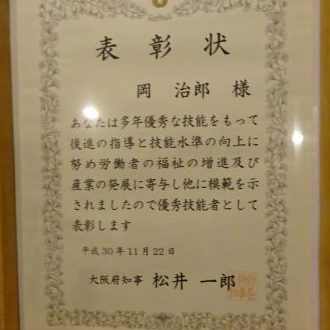 表彰状
岡 治郎 様
あなたは多年優秀な技能をもって
後進の指導と技能水準の向上に
努め労働者の福祉の増進及び
産業の発展に寄与し他に模範を示
されましたので優秀技能者として
表彰します
平成30年11月22日
大阪府知事 松井 一郎